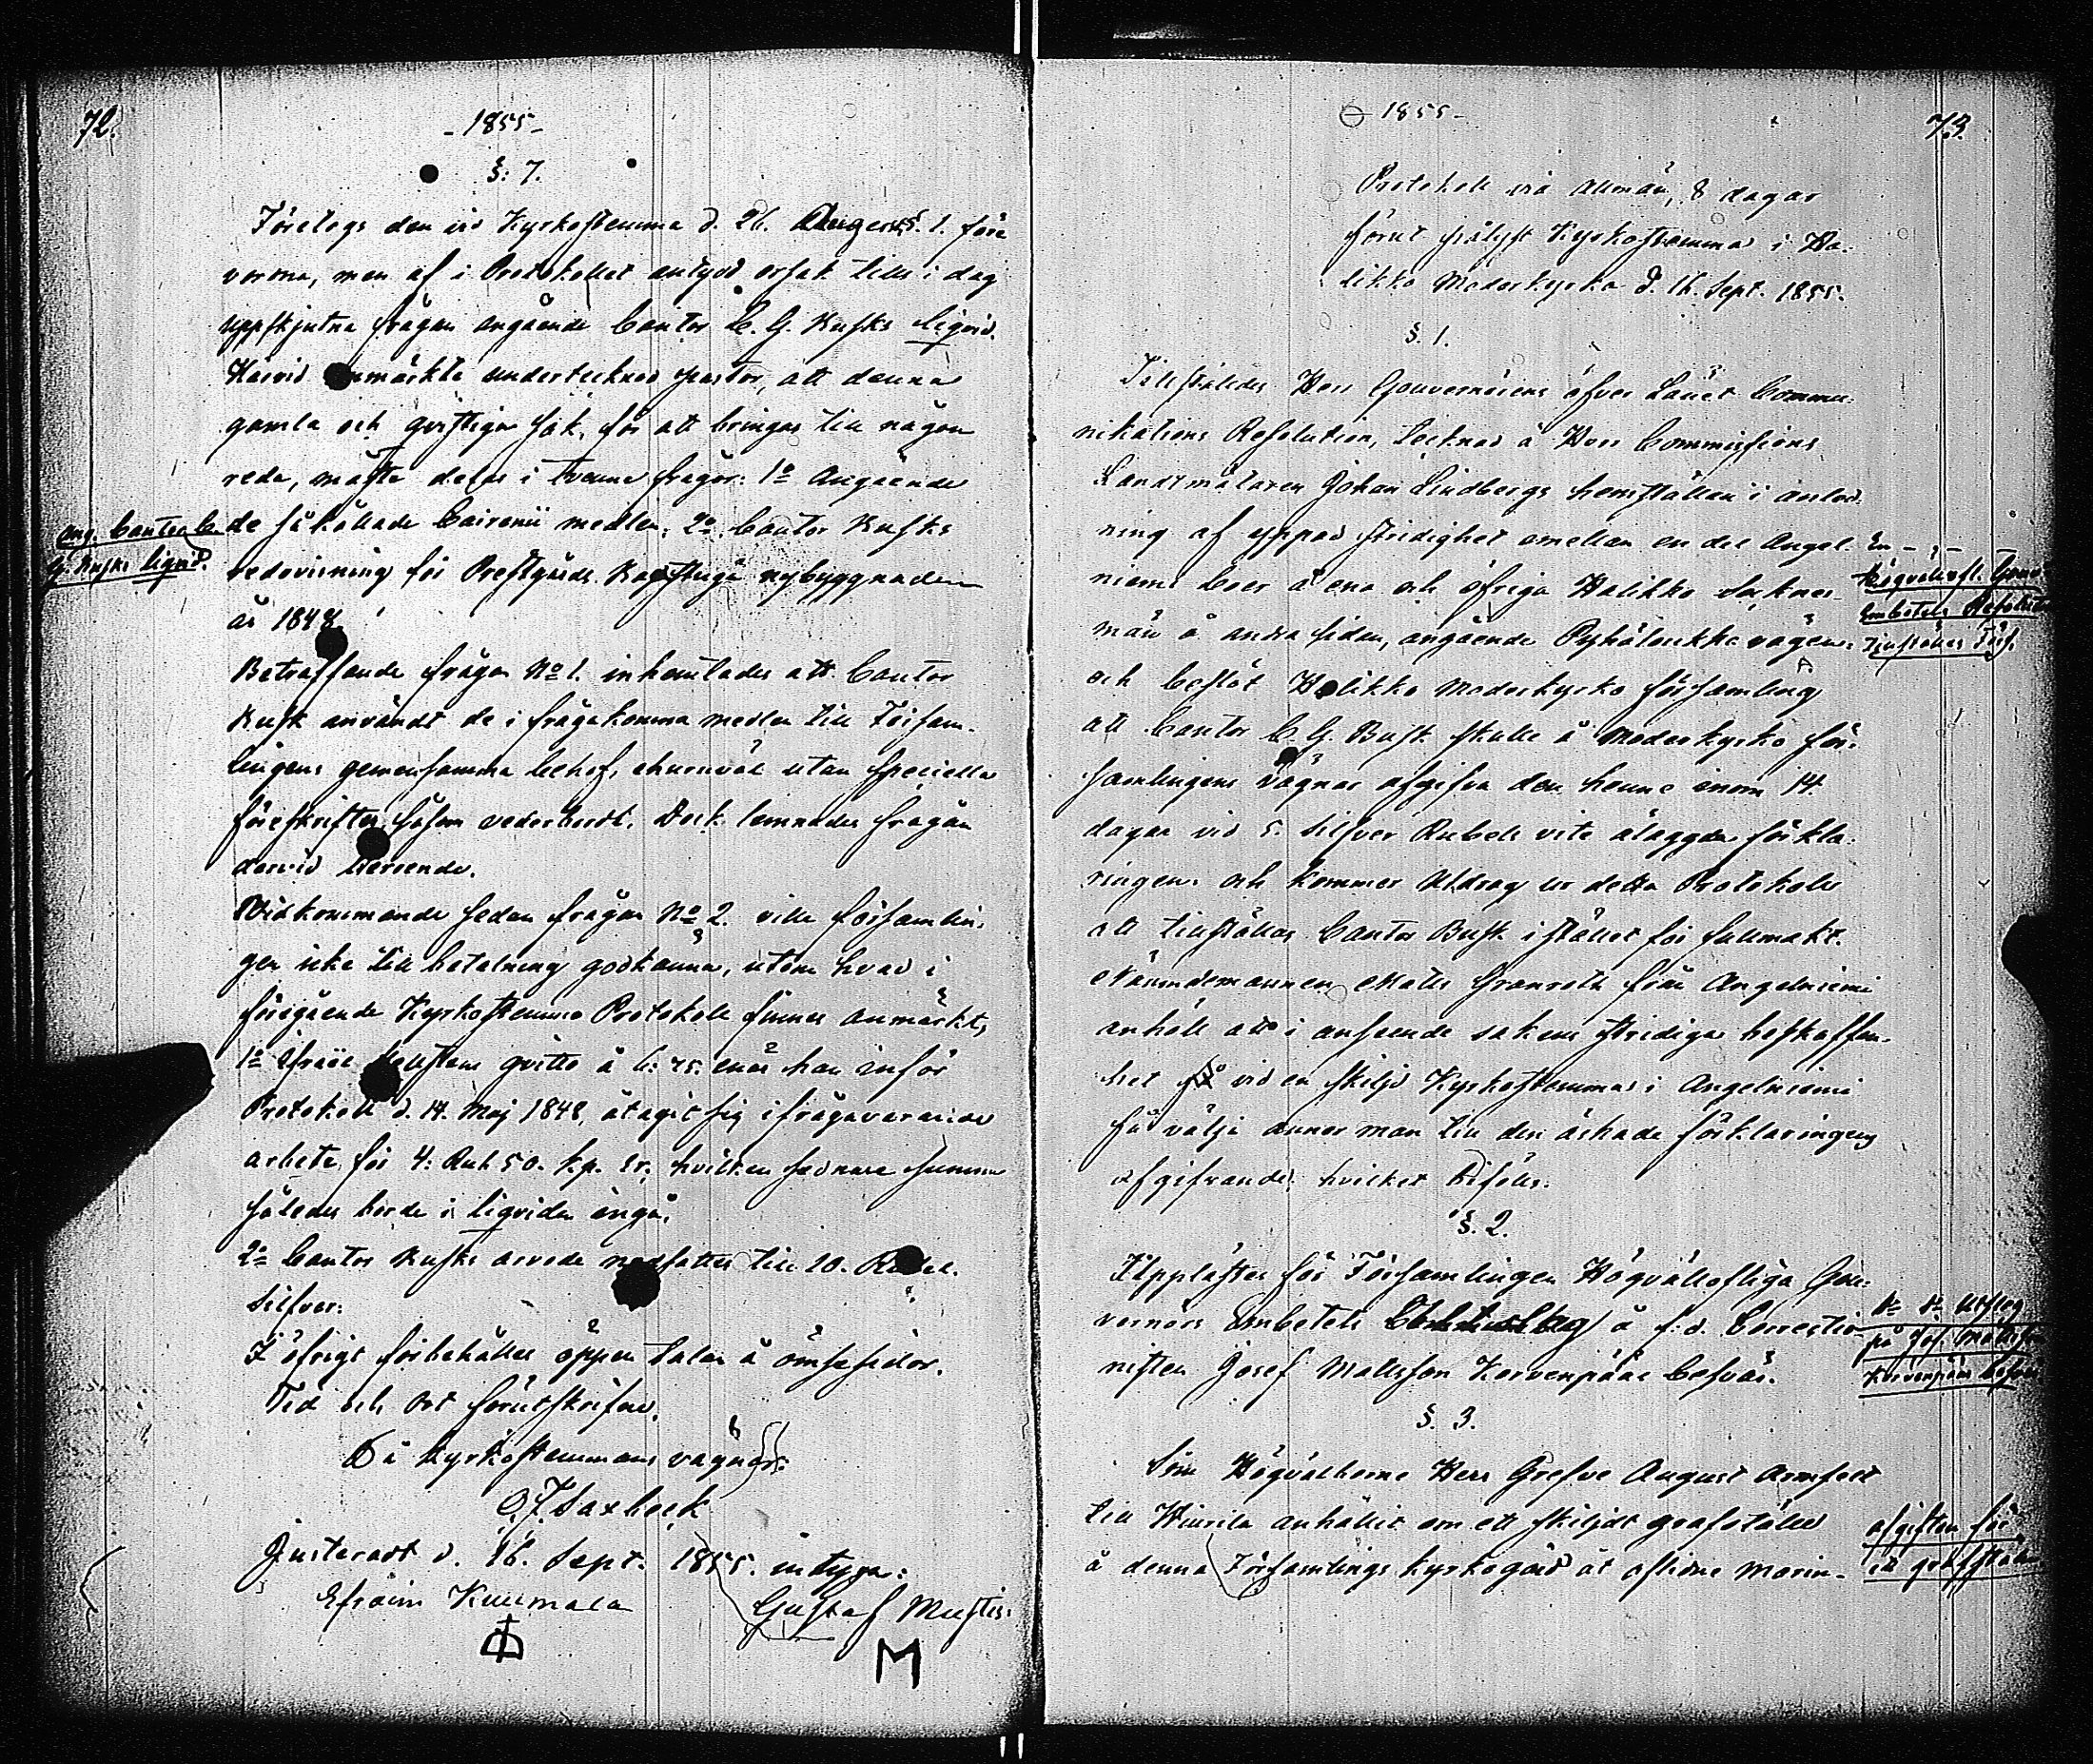 72.
- 1855 -
§: 7.
Företogs den vid Kyrkostemma d. 26. Augusti s. l. före
varma, men af i Protokollet antydd orsak till i dag
uppskjutna frågan angående Cantor C. G. Busks liqvid.
Härvid anmärkte undertecknad pastor, att denna
gamla och qvistiga sak, för att bringas till någon
reda, måste delas i tvenne frågor: 1o Angående
de så kallade Cairenii medlen; 2o Cantor Busks
ang. Cantor C.
G. Busks liqvid.
redovisning för Prestgårds Bagstugu nybyggnaden
år 1848.
Beträffande frågan No 1. inhemtades att Cantor
Busk användt de i fråga komna medlen till Församlingens
gemensamma behof, ehuruväl utan speciella
föreskrifter, såsom vederbordt. Dock lemnades frågan
dervid beroende.
Vidkommande sedan frågan No 2. ville församlin-
gen icke till betalning godkänna, utom hvad i
föregående Kyrkostemmo Protokoll finnes anmärkt,
1o Israel Hellstens qvitto å 6: 75. enär han inför
Protokoll d. 14. Maj 1848, åtagit sig ifrågavarande
arbete för 4: Rub 50. kp. Sr. hvilken sednare summa
således borde i liqviden ingå.
2o Cantor Busks arvode nedsattes till 20. Rubel.
Silfver.
I öfrigt förbehålles öppen talan å ömse sidor.
Tid och Ort förutskrifne.
På Kyrkostemmans vägnar:
O. F. Saxbeck
Justeradt d. 16. Sept. 1855. intyga:
Efraim Kuumala
Gustaf Mustis:
M
- 1855 -
73.
Protokoll vid Allmän, 8 dagar
förut pålyst Kyrkostämma i Ha-
likko Moderkyrka d. 16. Sept. 1855.
§. 1.
Tillställdes Herr Gouverneurens öfver Länet Commu-
nikations Resolution, tecknad å Herr Commissions
Landtmätaren Johan Lindbergs hemställan i anled-
ning af uppkommen stridighet emellan en del Angel-
niemi boer å ena och öfriga Halikko Sockne-
män å andra sidan, angående Pyhäloukka vägen;
En - - -
Högvälofl. Gouv:
Embetets Resolution
Tillställes Förs.
och beslöt Halikko Moderkyrko församling
att Cantor C. G. Busk skulle å Moderkyrko för-
samlingens vägnar afgifva den henne inom 14.
dagar vid 5. Silfver Rubels vite ålagda förkla-
ringen, och kommer Utdrag ur detta Protokoll
att tillställas Cantor Busk i stället för fullmakt.
Nämndemannen Matts Granroth från Angelniemi
anhöll att i anseende sakens stridiga beskaffen-
het få vid en skiljd Kyrkostemma i Angelniemi
få välja annor man till den äskade förklaringens
afgifvande; hvilket bifölls.
§. 2.
Upplästes för Församlingen Högvällofliga Gou-
vernörs Embetets Utslag å f: d. Correctio-
nisten Josef Mattsson Korvenpääs besvär.
Do Do Utslag
på Jos. Mattssons
Korvenpääs besvär
§. 3.
Som Högvälborne Herr Grefve August Armfelt
till Wiurila anhållit om ett skiljdt grafställe
å denna Församlings kyrkogård åt aflidne Marin-
afgiften för
ett grafställe